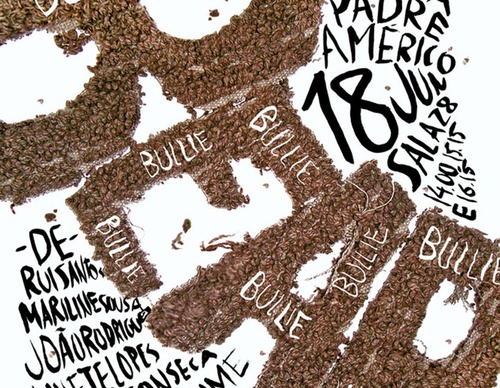 PADRE
AMÉRICO
18 JUN
SALA 28
14.00, 15.15
E 16.15
BULLIE
BULLIE
BULLIE
BULLIE
BULLIE
BULLIE
-DE-
RUI SANTOS
MARILINE SOUSA
JOÃO RODRIGUES
LOPES
FONSECA